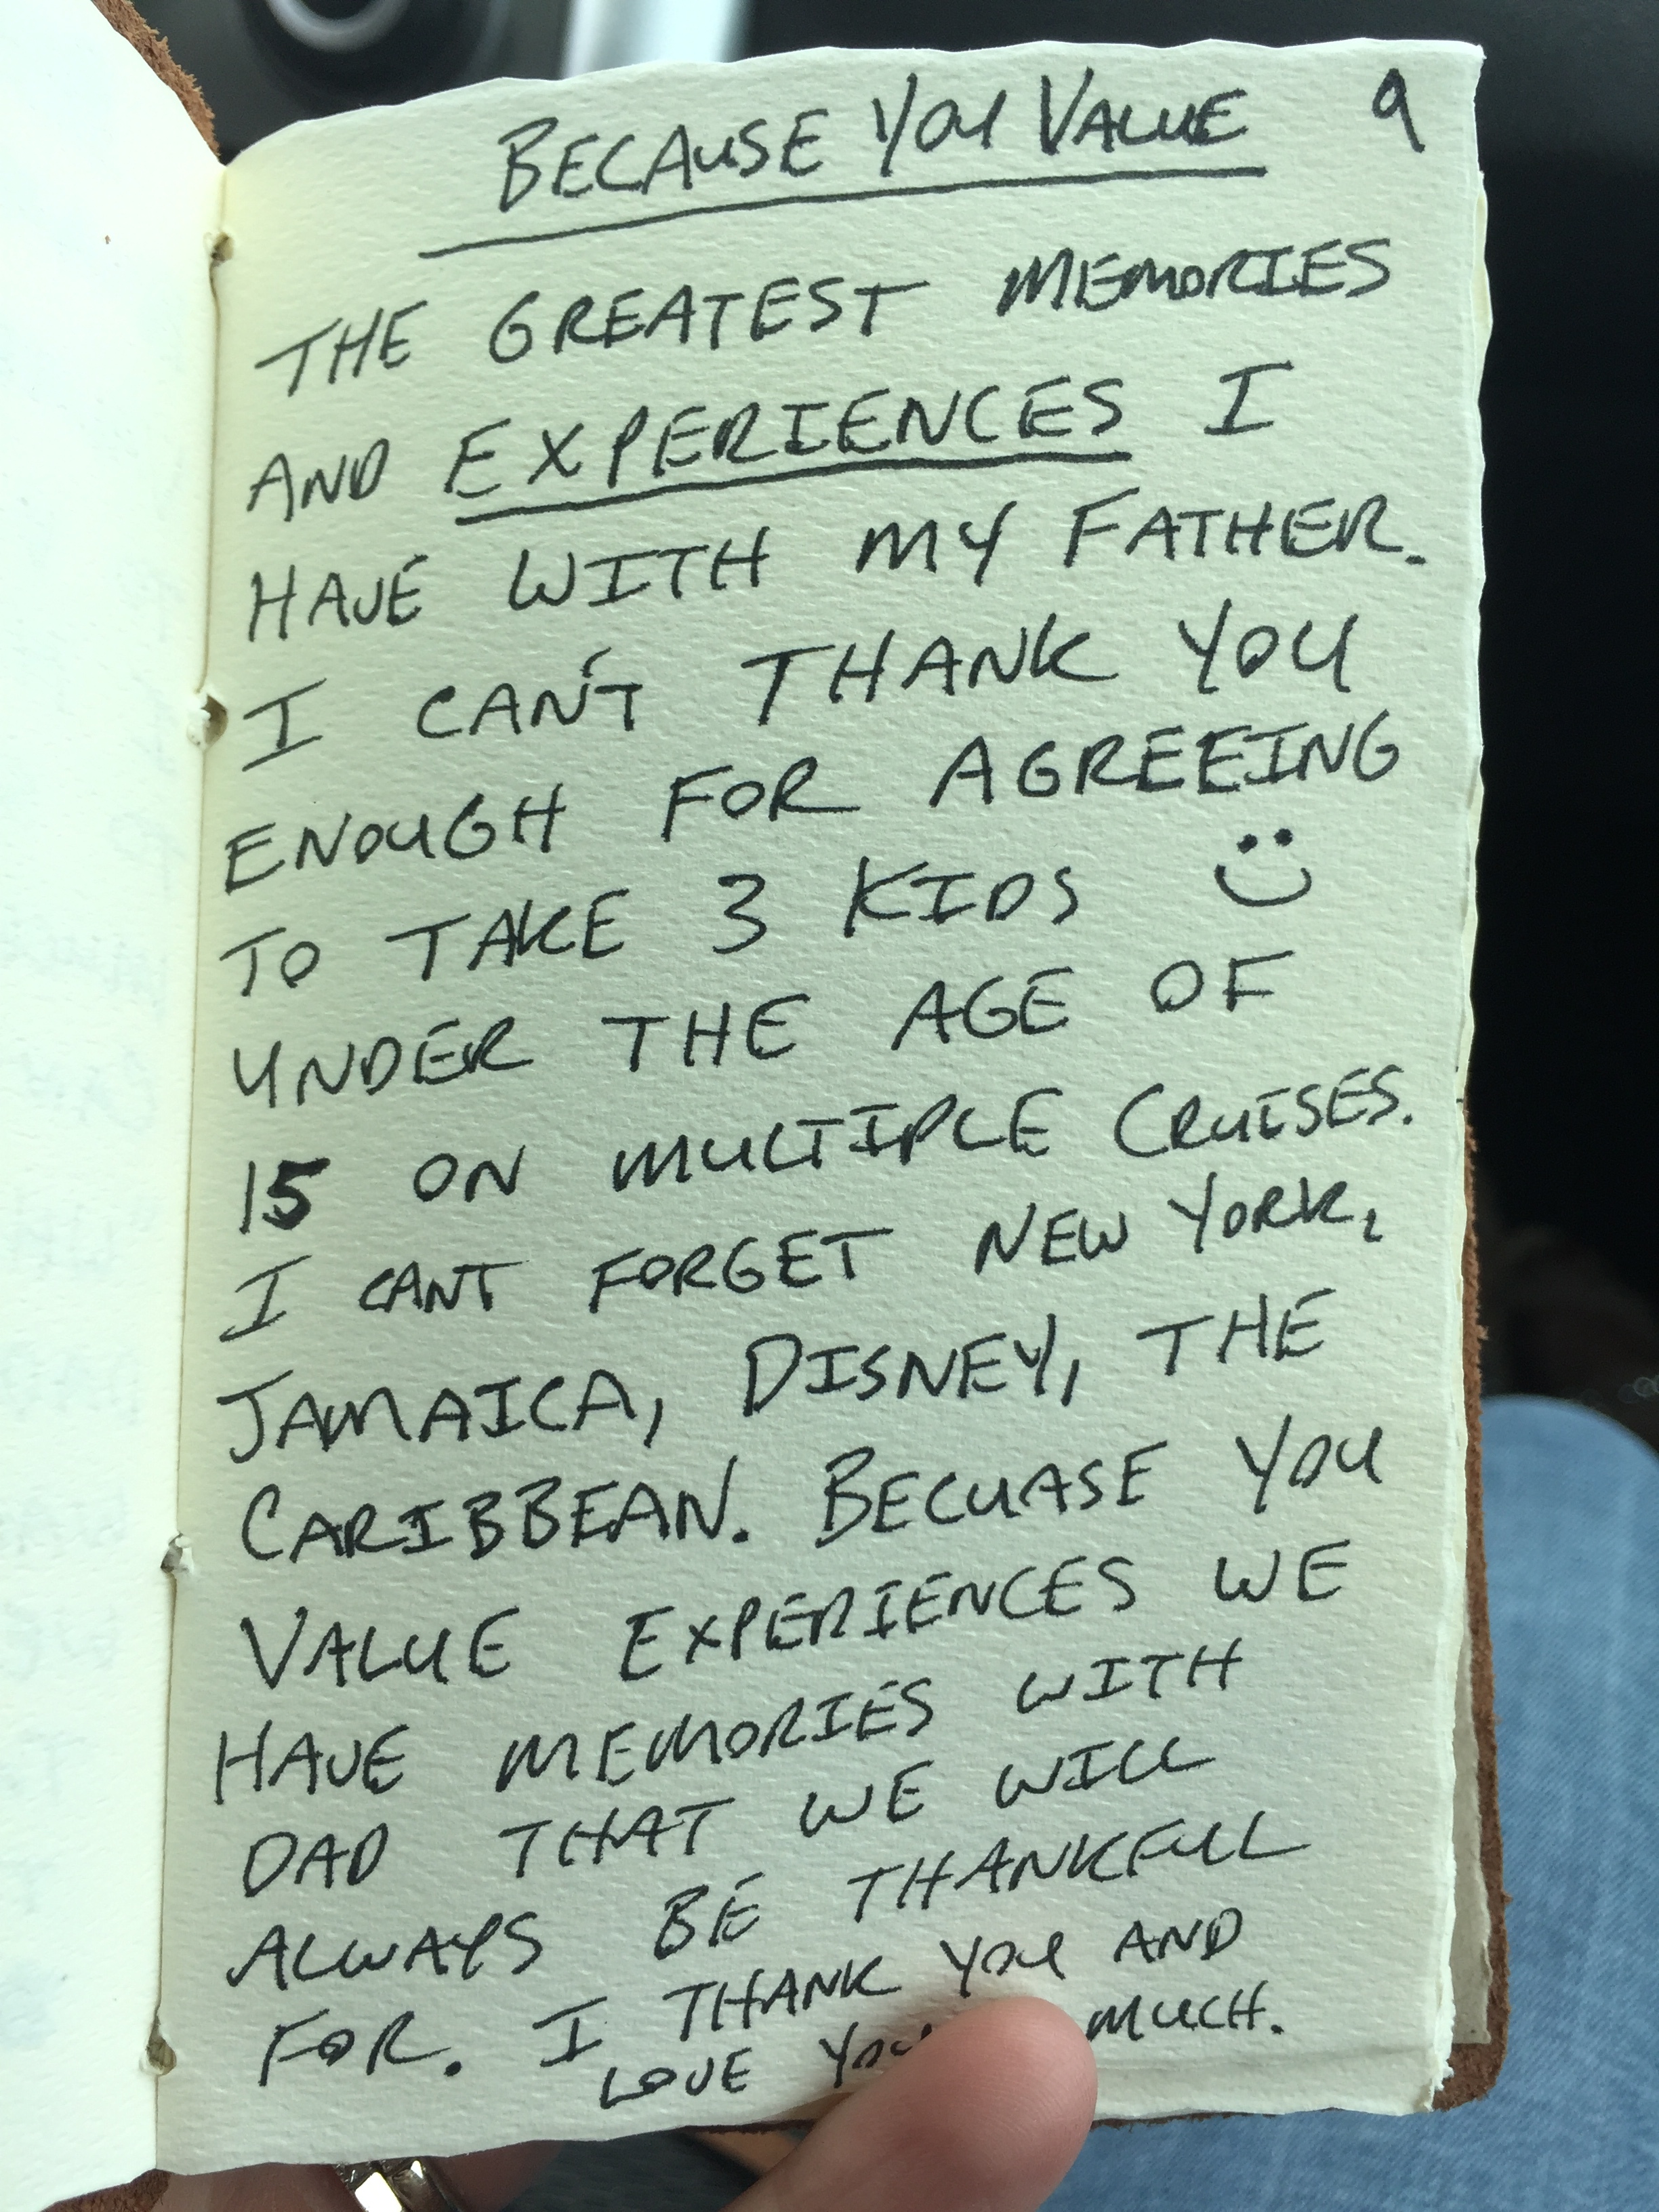 BECAUSE YOU VALUE 9
THE GREATEST MEMORIES
AND EXPERIENCES I
HAVE WITH MY FATHER.
I CAN'T THANK YOU
ENOUGH FOR AGREEING
TO TAKE 3 KIDS :)
UNDER THE AGE OF
15 ON MULTIPLE CRUISES.
I CANT FORGET NEW YORK,
JAMAICA, DISNEY, THE
CARIBBEAN. BECUASE YOU
VALUE EXPERIENCES WE
HAVE MEMORIES WITH
DAD THAT WE WILL
ALWAYS BE THANKFULL
FOR. I THANK YOU AND
LOVE YOU MUCH.